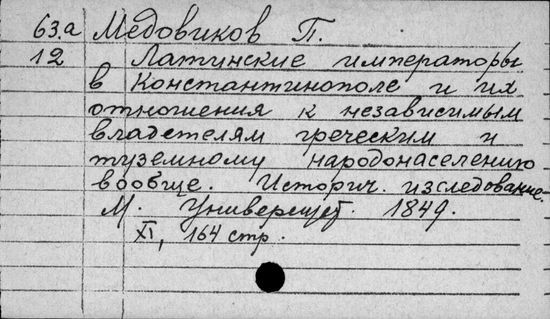 63.а Медовиков П.
12 Латинские императоры
в Константинополе и их
отношения к независимым
владетелям греческим и
туземному народонаселению
вообще. Историч. изследование.
М. Университ. 1849.
XI, 164 стр.